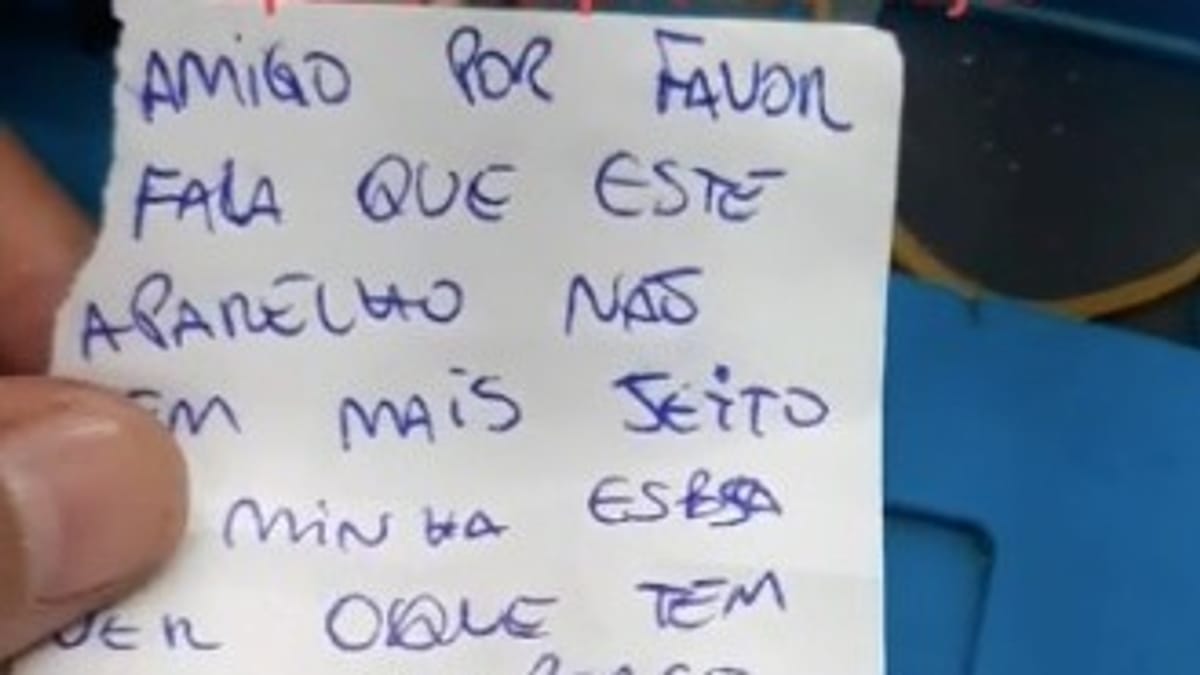 AMIGO POR FAVOR
FALA QUE ESTE
APARELHO NÃO
EM MAIS JEITO
MINHA
VER OQUE TEM